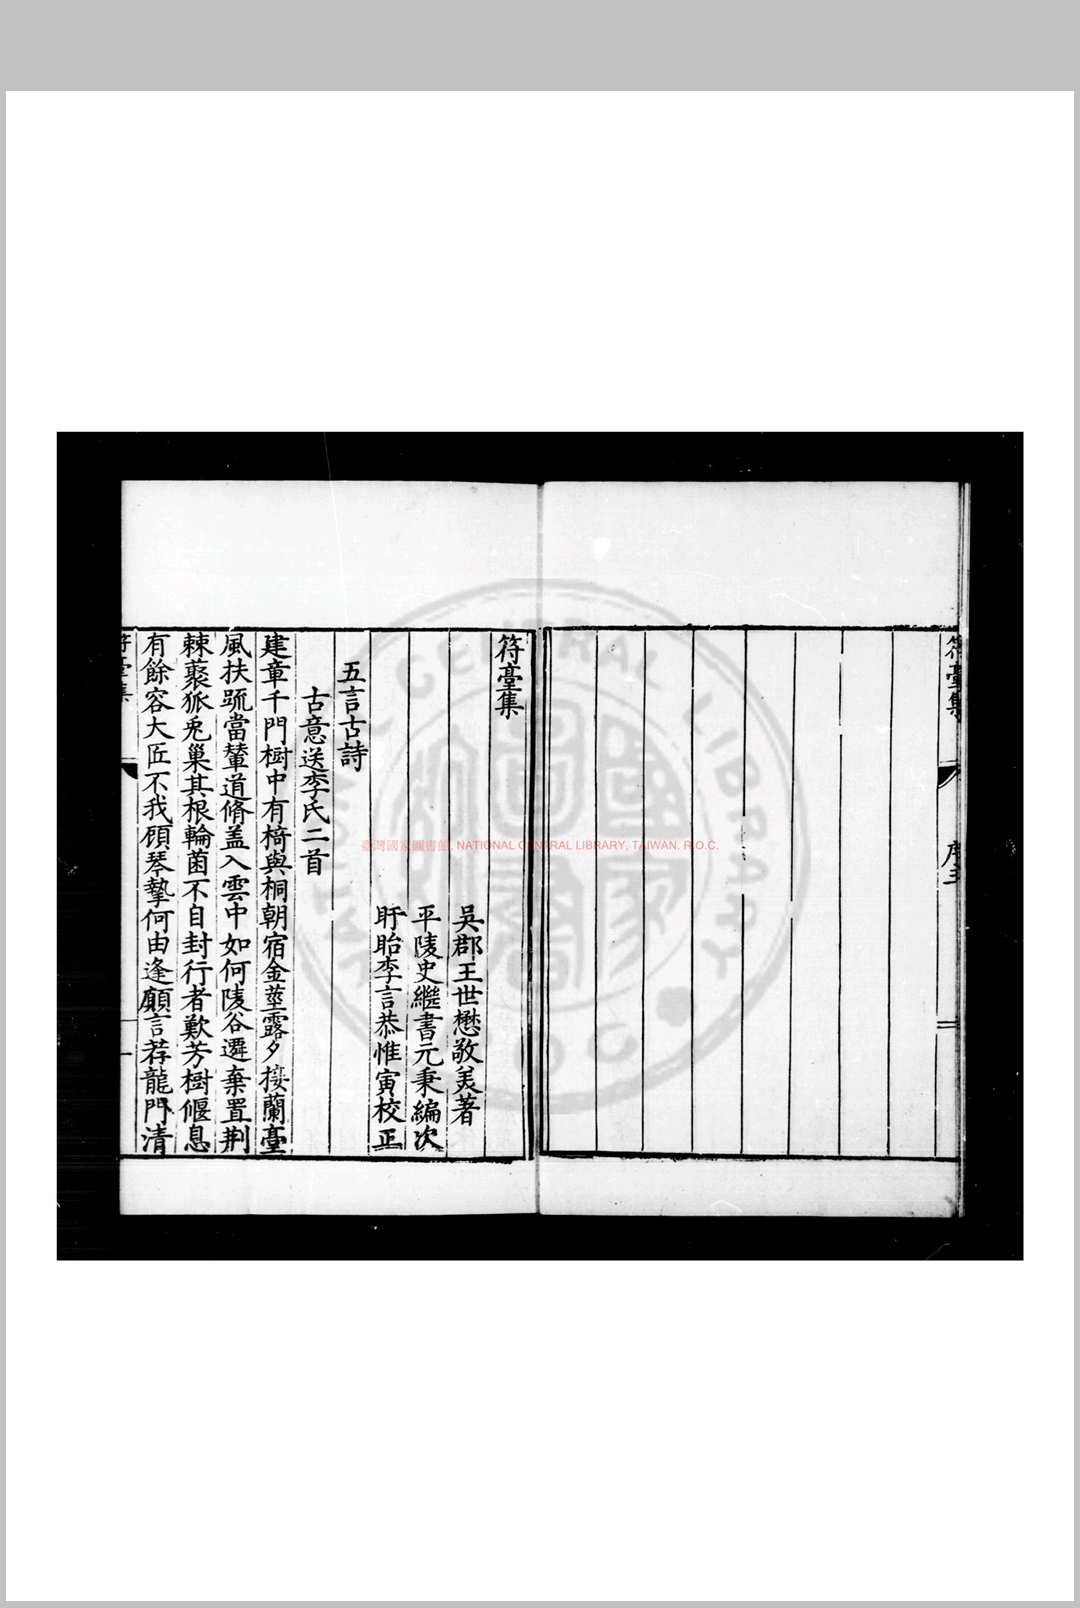 符臺集
序五
符臺集
吳郡王世懋敬美著
平陵史繼書元秉編次
盱眙李言恭惟寅校正
五言古詩
古意送李氏二首
建章千門樹中有椅與桐朝宿金莖露夕接蘭臺
風扶疏當輦道脩蓋入雲中如何陵谷遷棄置荆
棘藂狐兎巢其根輪菌不自封行者歎芳樹偃息
有餘容大匠不我顧琴摯何由逢願言荐龍門清
符臺集
一
臺灣國家圖書館, NATIONAL CENTRAL LIBRARY, TAIWAN, R.O.C.